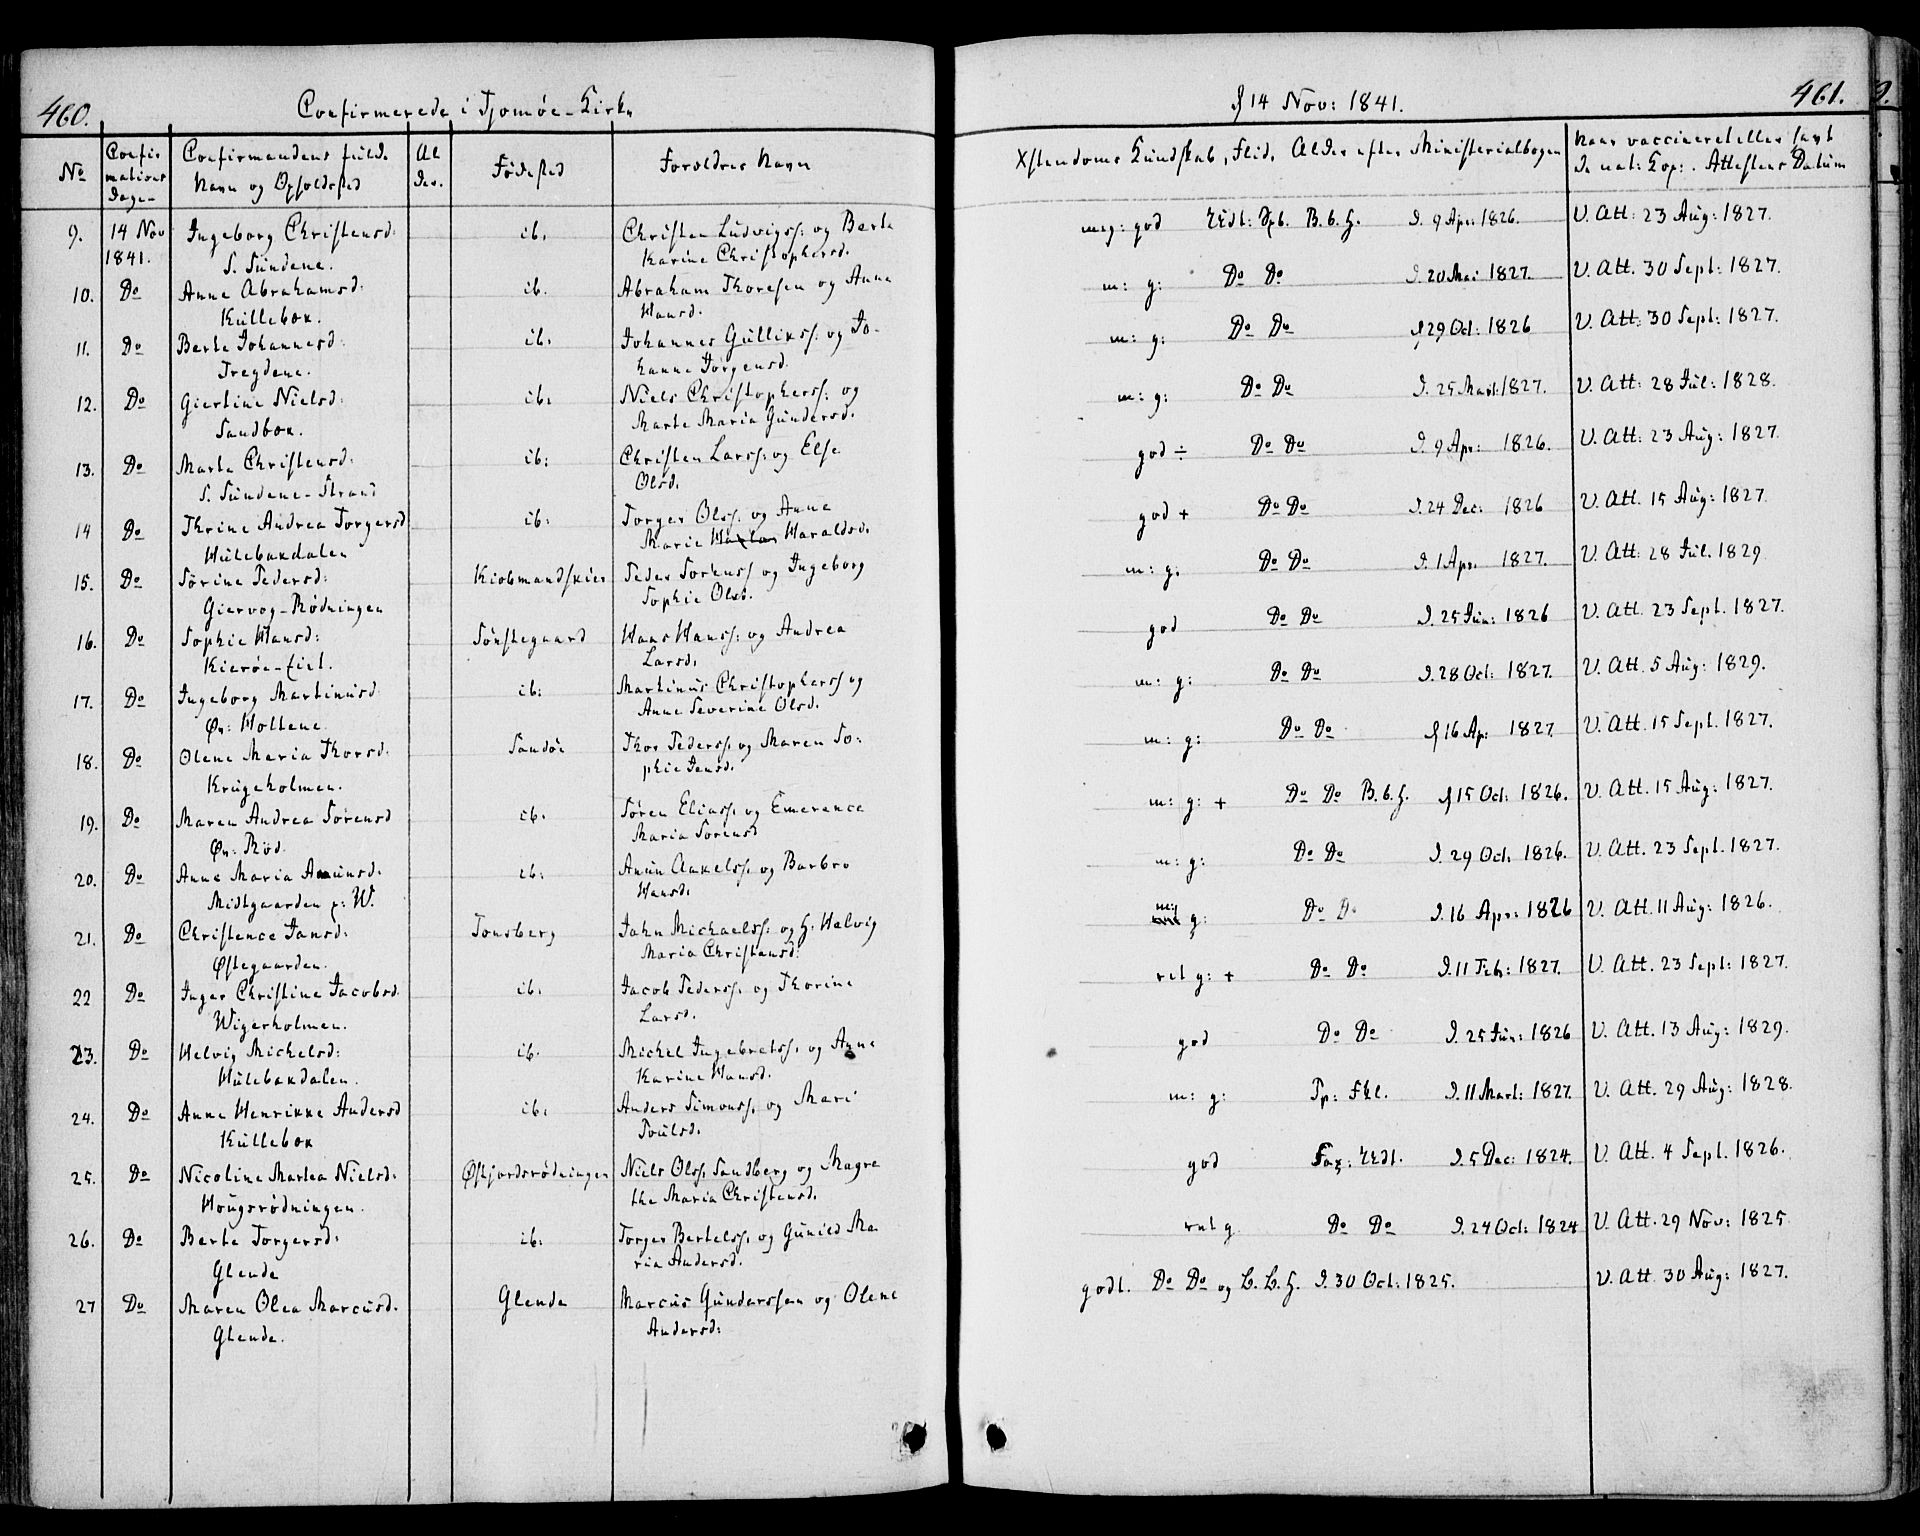 460.
Confirmerede i Tjømøe-Kirke
No
Confirmations Dagen
Confirmandens fulde
Navn og Opholdsted
Alder.
Fødested
Foreldres Navn
9. 14 Nov 1841. Ingeborg Christensd: ib. Christen Ludvigss: og Berte
S. Sundene. Karine Christophersd.
10. Do Anne Abrahamsd: ib. Abraham Thoresen og Anne
Kullebok. Hansd.
11. Do Berte Johannesd: ib. Johannes Gullikss: og Jo-
Tregdene. hanne Jørgensd.
12. Do Giertine Nielsd: ib: Niels Christopherss: og
Sandbok. Marte Maria Gundersd.
13. Do Marte Christensd: ib: Christen Larss: og Else
S. Sundene-Strand Olsd.
14 Do Thrine Andrea Torgersd ib: Torger Olss. og Anne
Hulebakdalen Marie Haraldsd.
15. Do Sørine Pedersd: Kiøbmandskier Peder Sørenss og Ingeborg
Giervog-Rødningen Sophie Olsd.
16. Do Sophie Hansd: Sønstegaard Hans Hanss: og Andrea
Kierøe-Eiet. Larsd.
17. Do Ingeborg Martinusd: ib: Martinus Christopherss og
Øv: Holtene. Anne Severine Olsd.
18. Do Olene Maria Thorsd: Sandøe Thor Pederss. og Maren So:
Krugeholmen. phie Jensd.
19. Do Maren Andrea Sørensd ib. Søren Eliass. og Emerence
Øv: Rød. Maria Sørensd
20. Do Anne Maria Amunsd. ib: Amun Axelss. og Barbro
Midtgaarden p: W. Hansd.
21. Do Christence Jansd: Tønsberg Jahn Michaelss: og H. Helvig
Østegaarden. Maria Christensd:
22 Do Inger Christine Jacobsd. ib. Jacob Pederss. og Thorine
Wigerholmen. Larsd.
23. Do Helvig Mickelsd: ib. Mickel Ingebretss. og Anne
Hulebakdalen. Karine Hansd.
24. Do Anne Henrikke Andersd ib. Anders Simonss. og Mari
Kullebok Poulsd.
25. Do Nicoline Martea Nielsd: Østjordsrødningen Niels Olss. Sandberg og Magre
Hougsrødningen. the Maria Christensd.
26. Do Berte Torgersd: ib: Torger Bertelss. og Gunild Ma-
Glende ria Andersd.
27 Do Maren Olea Marcusd. Glende Marcus Gunderssen og Olene
Glende. Andersd:
d 14 Nov: 1841.
461.
Xstendoms Kundskab, Flid, Alder efter Ministerialbogen
Naar vaccineret eller havt
de nat: Kop: . Attestens Datum
meg: god B. b. H. d. 9 Apr: 1826. V. Att: 23 Aug: 1827.
m: g: Do Do d. 20 Mai 1827. V. Att. 30 Sept: 1827.
m: g: Do Do d 29 Oct: 1826 V. Att: 30 Sept: 1827.
m: g: Do Do d. 25 Mart: 1827. V. Att: 28 Jul: 1828.
god ÷ Do Do d. 9 Apr: 1826. V. Att: 23 Aug: 1827.
god + Do Do d. 24 Dec: 1826 V. Att. 15 Aug: 1827.
m: g: Do Do d. 1 Apr. 1827. V. Att: 28 Jul. 1829.
god Do Do d. 25 Jun: 1826 V. Att. 23 Sept. 1827.
m: g: Do Do d. 28 Oct: 1827. V. Att. 5 Aug: 1829.
m: g: Do Do d 16 Ap: 1827. V. Att. 15 Sept. 1827.
m: g: + Do Do B. b. H. d 15 Oct: 1826. V. Att. 15 Aug: 1827.
m: g: Do Do d. 29 Oct. 1826. V. Att. 23 Sept. 1827.
m: g: Do Do d. 16 Apr: 1826 V. Att. 11 Aug: 1826.
ret g: + Do Do d. 11 Feb: 1827. V. Att. 23 Sept: 1827.
god Do Do d. 25 Jun: 1826 V. Att. 13 Aug: 1829.
m: g: d. 11 Mart: 1827. V. Att. 29 Aug: 1828.
god d. 5 Dec: 1824. V. Att. 4 Sept. 1826.
ret g. Do Do d. 24 Oct: 1824 V. Att. 29 Nov: 1825.
godt. Do Do og B. b. H. d. 30 Oct: 1825. V. Att. 30 Aug: 1827.